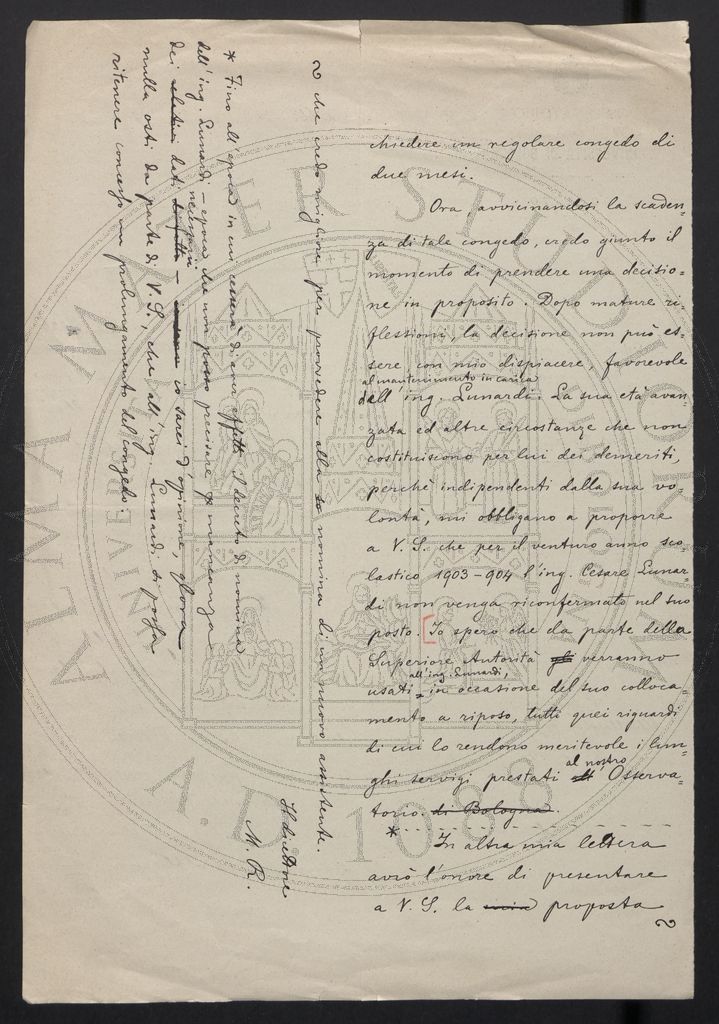 chiedere un regolare congedo di
due mesi.
Ora, avvicinandosi la scaden-
za di tale congedo, credo giunto il
momento di prendere una decisio-
ne in proposito. Dopo mature ri-
flessioni, la decisione non può es-
sere, con mio dispiacere, favorevole
al mantenimento in carica
dell'ing. Lunardi. La sua età avan-
zata ed altre circostanze che non
costituiscono per lui dei demeriti,
perchè indipendenti dalla sua vo-
lontà, mi obbligano a proporre
a V. S. che per il venturo anno sco-
lastico 1903-904 l'ing. Cesare Lunar-
di non venga riconfermato nel suo
posto. [Io spero che da parte della
Superiore Autorità gli verranno
all'ing. Lunardi,
usati, in occasione del suo colloca-
mento a riposo, tutti quei riguardi
di cui lo rendono meritevole i lun-
al nostro
ghi servigi prestati all' Osserva-
torio di Bologna.
* In altra mia lettera
avrò l'onore di presentare
a V. S. la mia proposta
che credo migliore per provvedere alla nomina di un nuovo assistente.
Il direttore
M. R.
* Fino all'epoca in cui cesserà di aver effetto il decreto di nomina
dell'ing. Lunardi - epoca che non posso precisare per mancanza
necessari
dei relativi dati - io sarei d'opinione, qualora
nulla osti da parte di V. S., che all'ing. Lunardi si possa
ritenere concesso un prolungamento del congedo.
ALMA MATER STUDIORUM
A.D. 1088